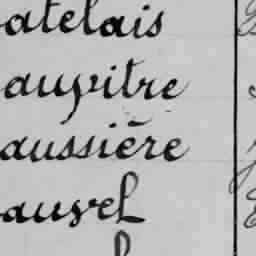 atelais
aupitre
aussière
auvel